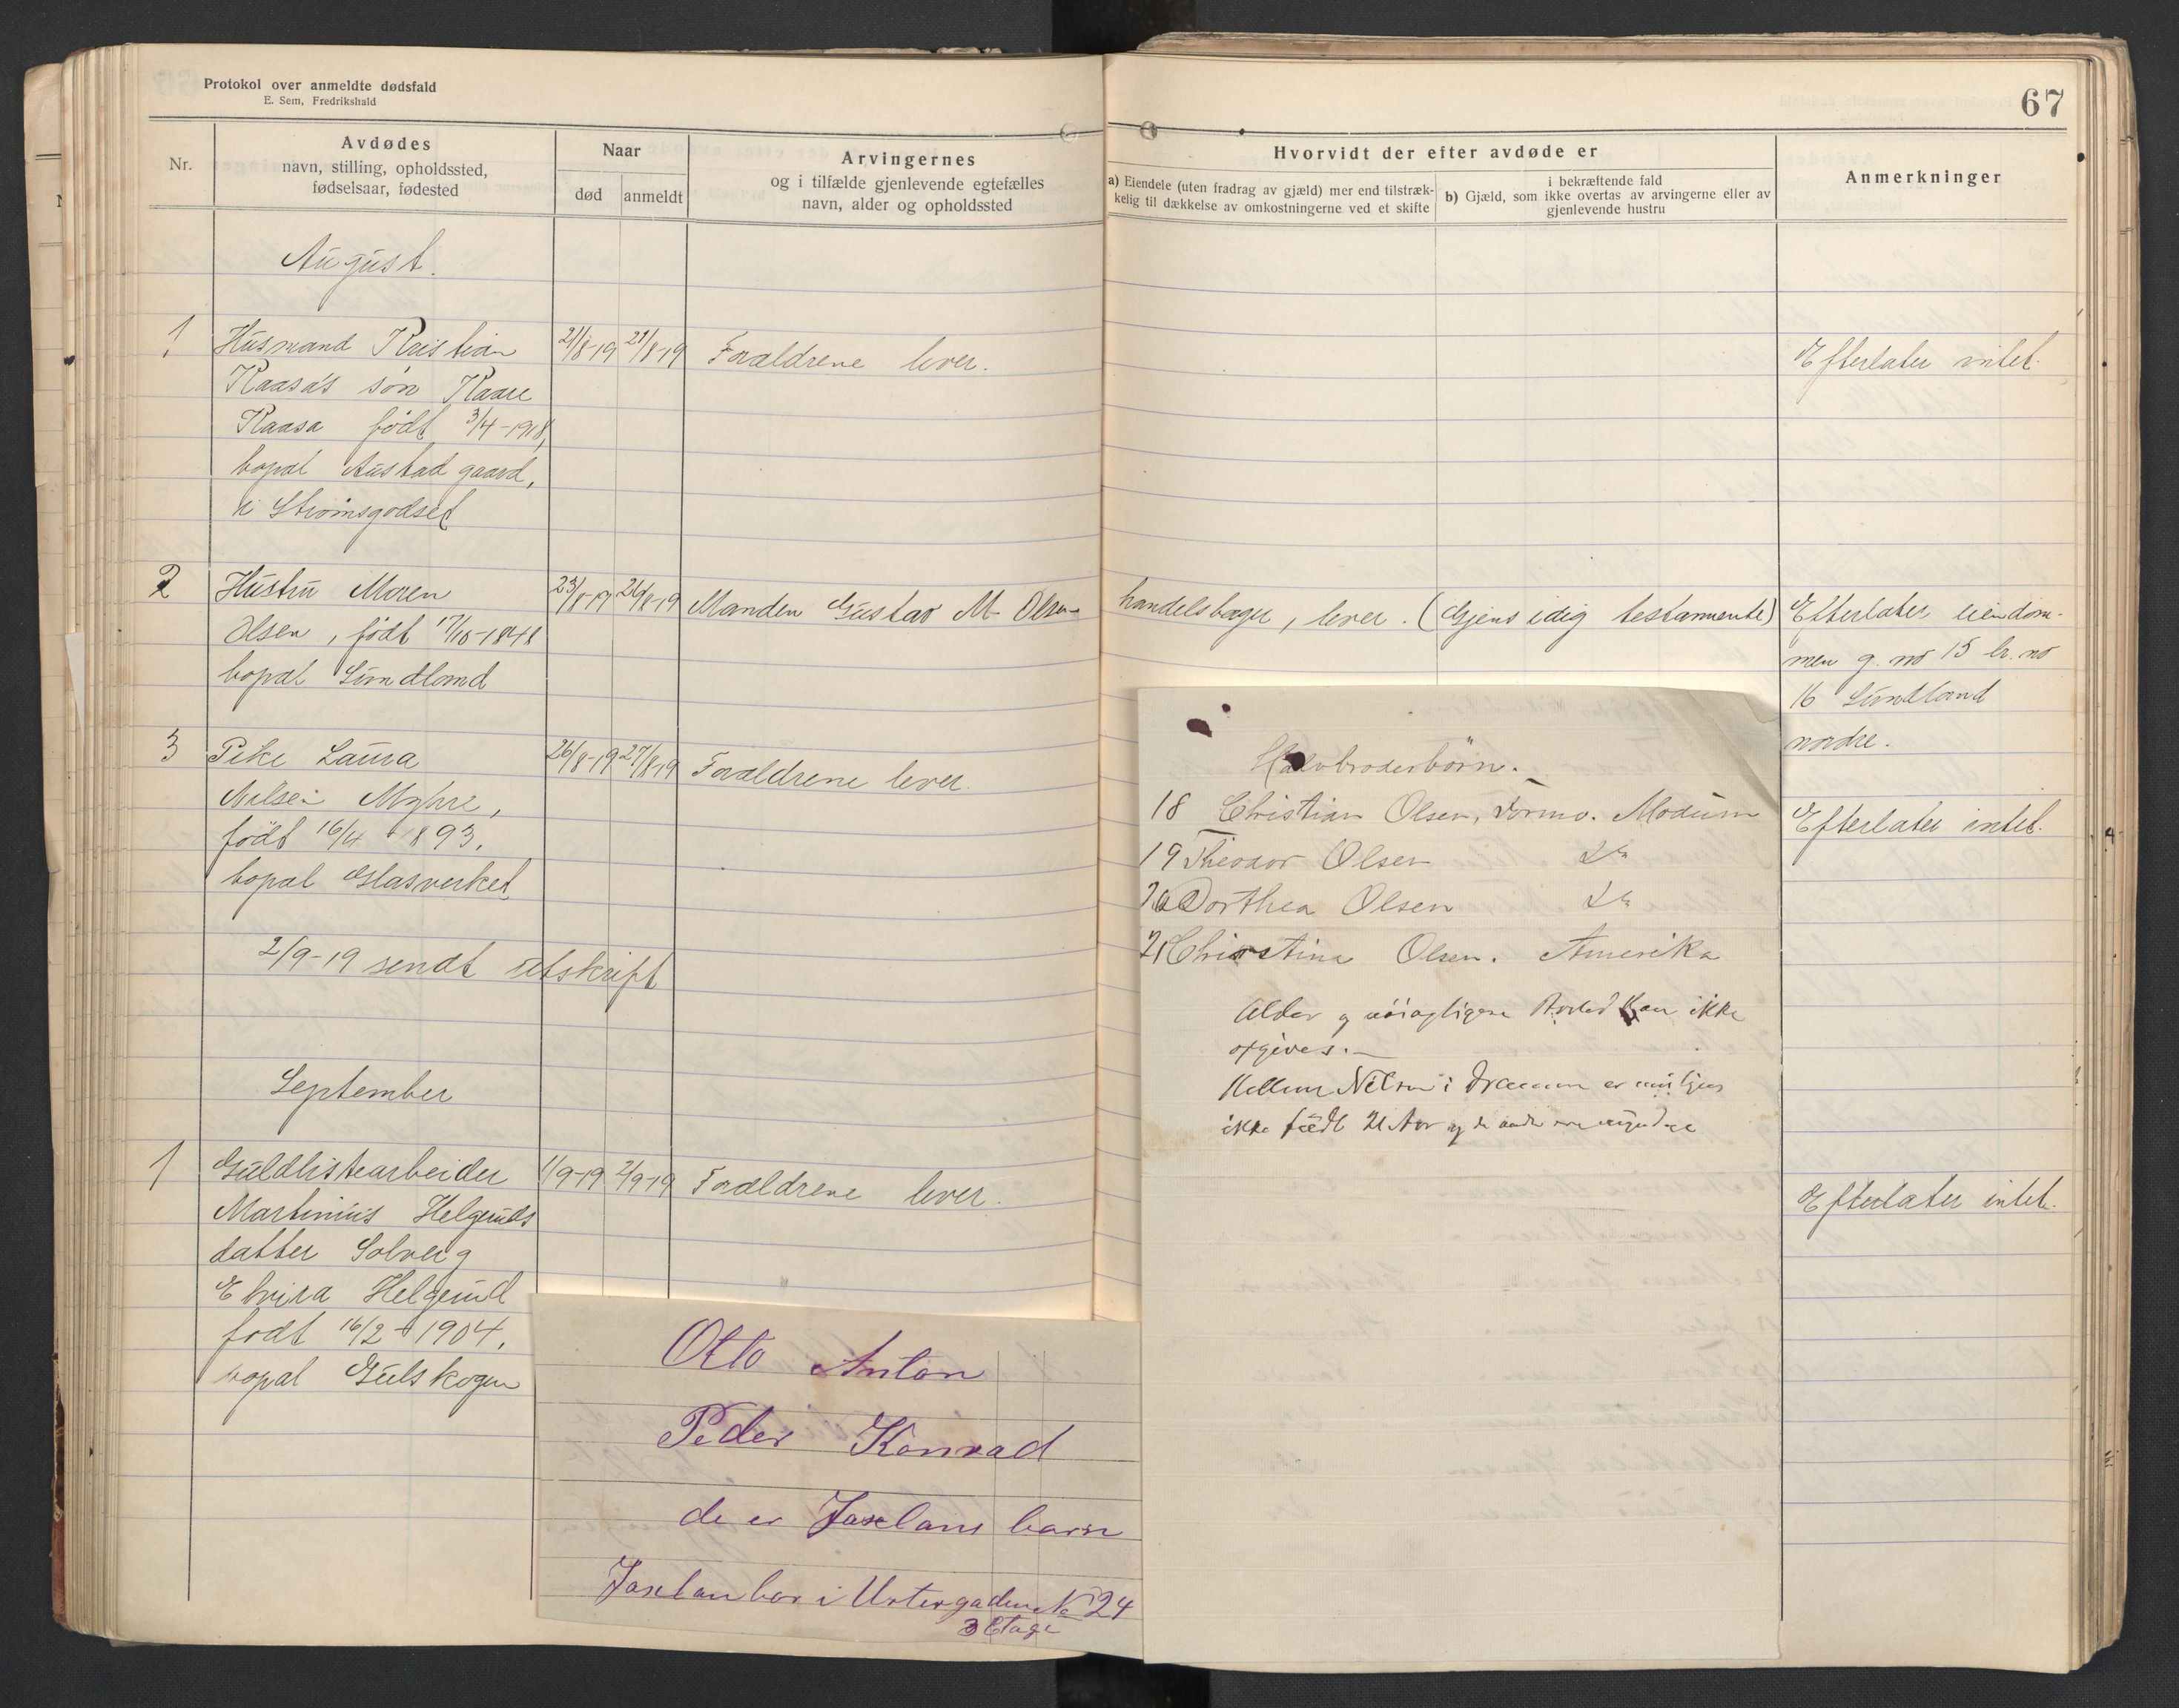 Protokol over anmeldte dødsfald
E. Sem, Fredrikshald
67
Nr.
Avdødes
navn, stilling, opholdssted,
fødselsaar, fødested
Naar
død
anmeldt
Arvingernes
og i tilfælde gjenlevende egtefælles
navn, alder og opholdssted
Hvorvidt der efter avdøde er
a) Eiendele (uten fradrag av gjæld) mer end tilstræk-
kelig til dækkelse av omkostningerne ved et skifte
i bekræftende fald
b) Gjæld, som ikke overtas av arvingerne eller av
gjenlevende hustru
Anmerkninger
August.
1 Husmand Kristian 21/8-19 21/8-19 Forældrene lever. Efterlater intet.
Kaasa's søn Kaare
Kaasa født 3/4-1918,
bopæl Austad gaard,
i Strømsgodset
2 Hustru Maren 23/8-19 26/8-19 Manden Gustav M. Olsen handelsbøger, lever. (Gjensidig testamente) Efterlater eiendom-
Olsen, født 17/10-1848 men g. no 15 br. no
bopæl Sundland 16 Sundland
nordre.
3 Pike Laura 26/8-19 27/8-19 Forældrene lever. Efterlater intet.
Nilsen Myhre,
født 16/4 1893.
bopæl Glasverket
2/9-19 sendt utskrift
September
1 Guldlistearbeider 1/9-19 2/9-19 Forældrene lever. Efterlater intet.
Martinius Helgeruds
datter Solveig
Elvira Helgerud
født 16/2-1904,
bopæl Gulskogen
Halvbroderbörn.
18 Christian Olsen, Modum
19 Theodor Olsen do
20 Dorthea Olsen do
21 Christine Olsen. Amerika
Alder og nöiagtigere Bosted kan ikke
opgives.
Nilsen i Drammen er
ikke født 21 Aar og de andre ere myndige
Otto Anton
Peder Konrad
de er barn
bor i Urtergaden No 24
3 Etage